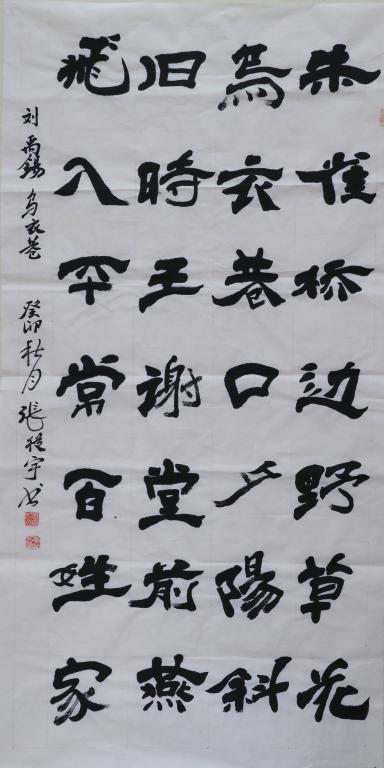 朱雀桥边野草花
烏衣巷口夕陽斜
旧時王谢堂前燕
飛入平常百姓家
刘禹锡 乌衣巷 癸卯秋月 張宇书